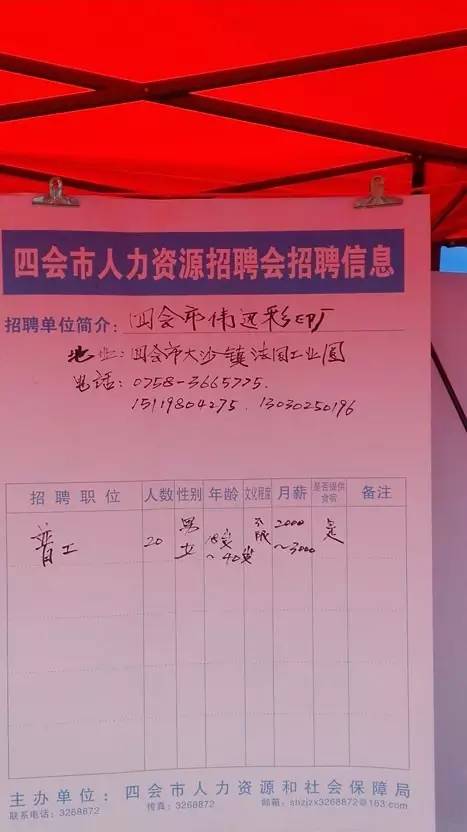 四会市人力资源招聘会招聘信息
招聘单位简介: 四会市伟运彩印厂
地址: 四会市大沙镇法国工业园
电话: 0758-3665775.
15119804275. 13030250196
招聘职位 人数 性别 年龄 文化程度 月薪 是否提供食宿 备注
普工 20 男女 18岁~40岁 不限 2000~3000 是
主办单位: 四会市人力资源和社会保障局
联系电话: 3268872 传真: 3268872 邮箱: shzjzx3268872@163.com